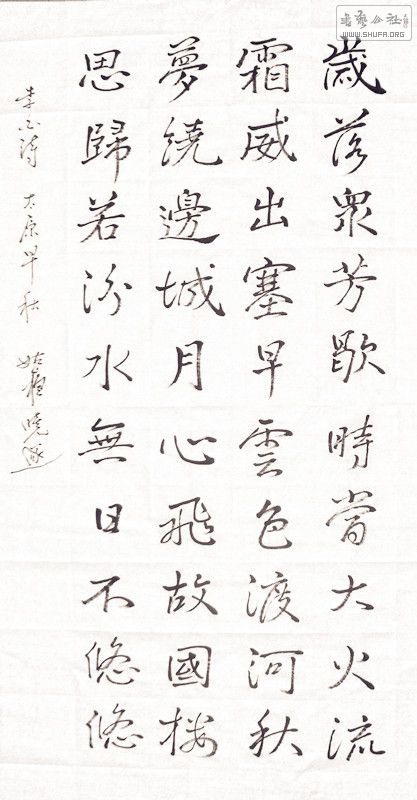 歲落眾芳歇時當大火流
霜威出塞早雲色渡河秋
夢繞邊城月心飛故國樓
思歸若汾水無日不悠悠
李白詩 太原早秋 姑蘇曉遜
書藝公社
WWW.SHUFA.ORG